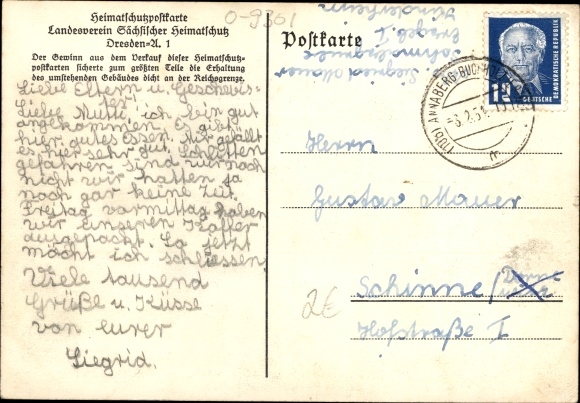 Heimatschutzpostkarte
Landesverein Sächsischer Heimatschutz
Dresden-A. 1
Der Gewinn aus dem Verkauf dieser Heimatschutz-
postkarten sicherte zum größten Teile die Erhaltung
des umstehenden Gebäudes dicht an der Reichsgrenze.
0-9301
Postkarte
Siegrid Mauer
DEUTSCHE DEMOKRATISCHE REPUBLIK
12
ANNABERG-BUCHHOLZ
Liebe Eltern u. Geschwis-
ter!
Liebe Mutti, ich bin gut
angekommen. Es gibt
hier gutes Essen. Mir gefällt
es hier sehr gut. Schlitten
gefahren sind wir noch
nicht wir hatten ja
noch gar keine Zeit.
Freitag vormittag haben
wir unseren Koffer
ausgepackt. So jetzt
möcht ich schliessen
Viele tausend
Grüße u. Küsse
von eurer
Siegrid.
Herrn
Gustav Mauer
Schinne/
Hofstraße I
2€